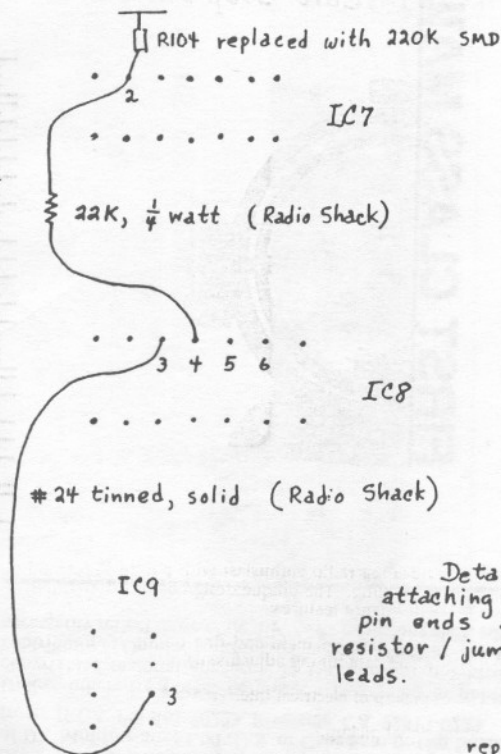 R104 replaced with 220K SMD
2
IC7
22K, ¼ watt (Radio Shack)
3 4 5 6
IC8
#24 tinned, solid (Radio Shack)
IC9
attaching
pin ends
resistor / jum
leads.
3